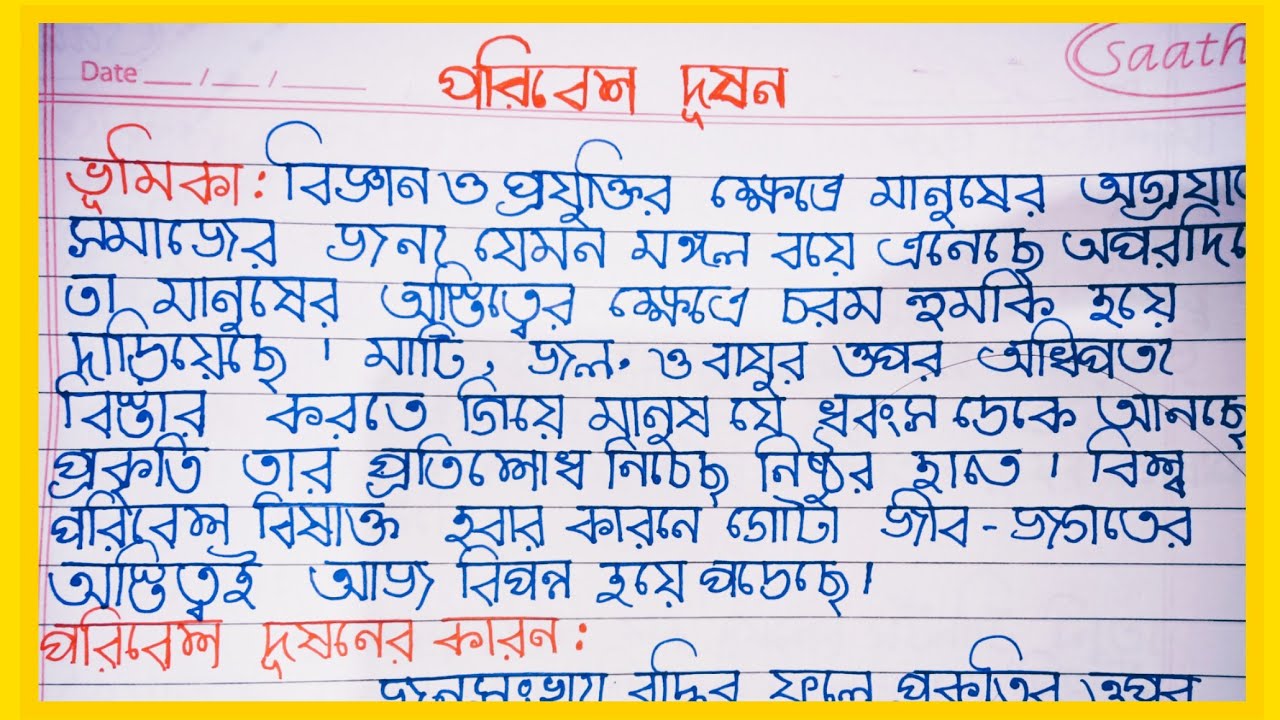 Date __ / __ / ____
saath
পরিবেশ দূষন
ভূমিকা: বিজ্ঞান ও প্রযুক্তির ক্ষেত্রে মানুষের
সমাজের জন্য যেমন মঙ্গল বয়ে এনেছে
তা মানুষের অস্তিত্বের ক্ষেত্রে চরম হুমকি হয়ে
দাড়িয়েছে । মাটি, জল, ও বায়ুর ওপর অধিপত্য
বিস্তার করতে গিয়ে মানুষ যে ধ্বংস ডেকে আনছে
প্রকৃতি তার প্রতিশোধ নিচ্ছে নিষ্ঠুর হাতে । বিশ্ব
পরিবেশ বিষাক্ত হবার কারনে গোটা জীব - জগতের
অস্তিত্বই আজ বিপন্ন হয়ে পড়েছে।
পরিবেশ দূষনের কারন :